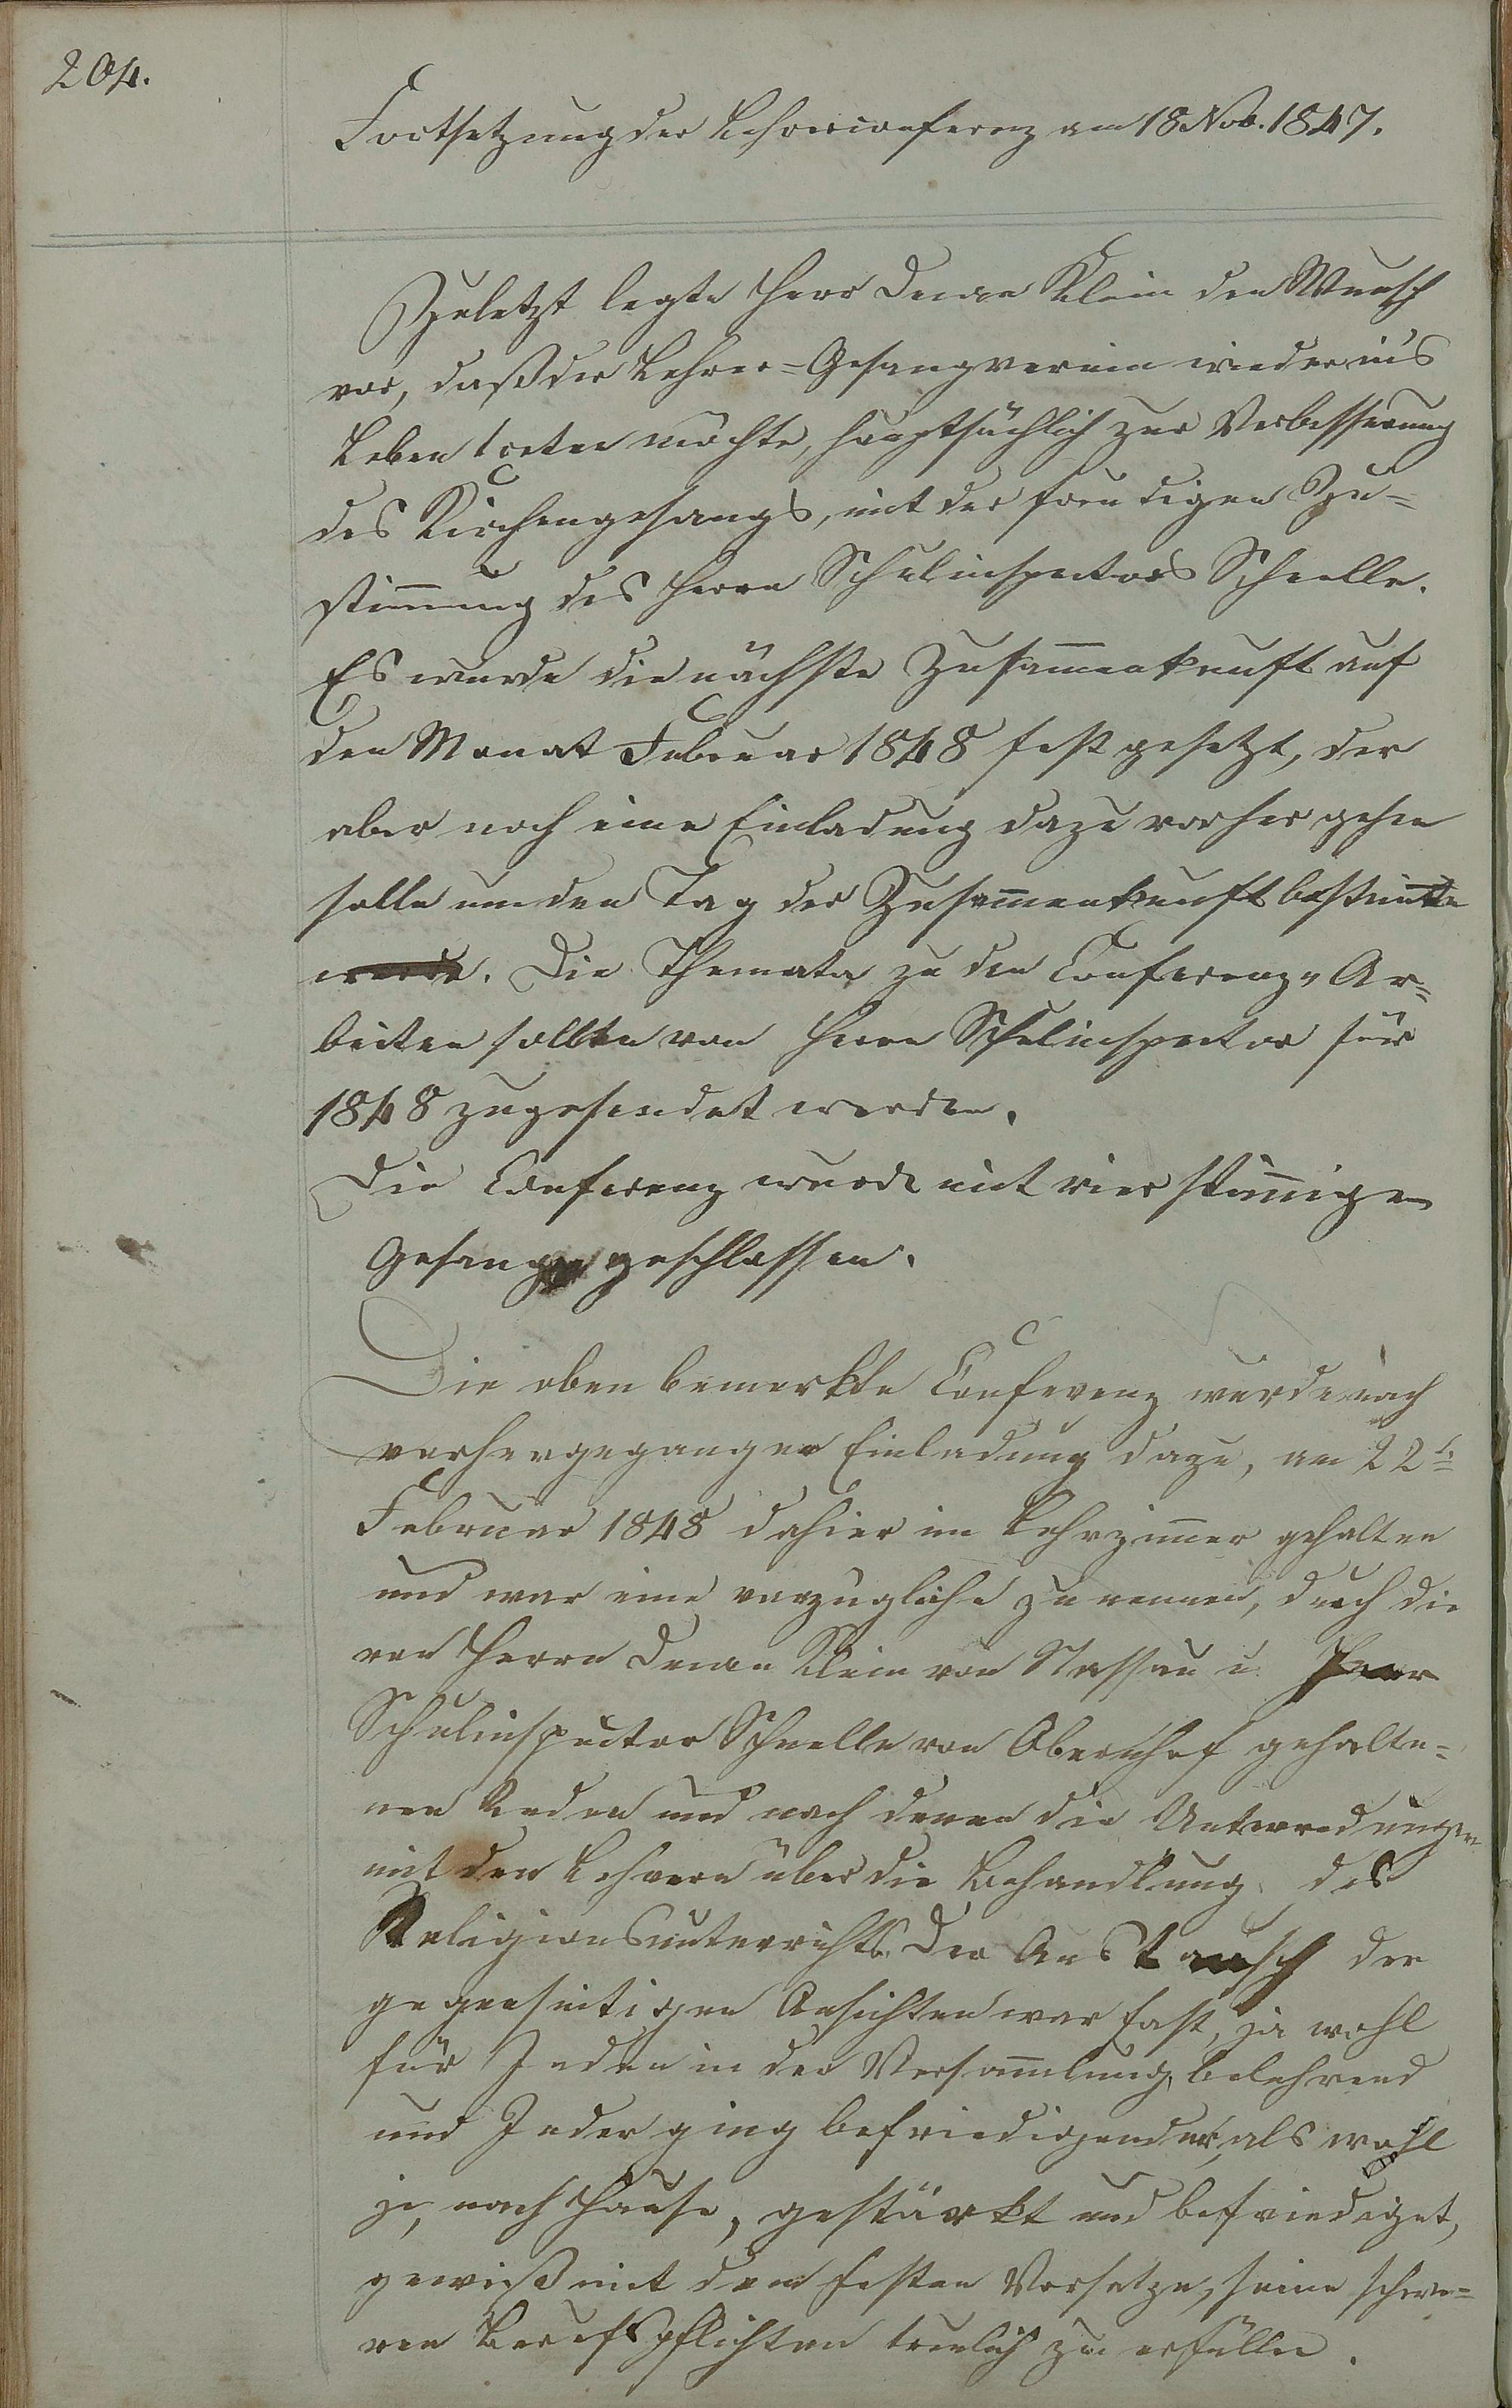 204.
Fortsetzung der Lehrerconferenz am 18 Nov. 1847.
Zuletzt legte Herr Decan Klein den Wunsch
vor, daß der Lehrer=Gesangverein wieder ins
Leben treten möchte, hauptsächlich zur Verbesserung
des Kirchengesangs, mit der freudigen Zu=
stimmung des Herrn Schulinspectors Schnelle.
Es wurde die nächste Zusammenkunft auf
den Monat Februar 1848 fest gesetzt, der
aber noch eine Einladung dazu vorher gehen
solle um den Tag der Zusammenkunft bestimmte
werde. Die Themata zu den Conferenz=Ar=
beiten sollten von Herrn Schulinspector für
1848 zugesendet werden.
Die Conferenz wurde mit vier stimmigen
Gesange geschlossen.
Die oben bemerkte Conferenz wurde nach
vorhergegangen Einladung dazu, am 22t.
Februar 1848 dahier im Lehrzimmer gehalten
und war eine vorzügliche zu nennen, durch die
von Herrn Decan Klein von Nassau u. Herr
Schulinspector Schnelle von Obernhof gehalte=
nen Reden und nach denen die Unterredungen
mit den Lehrern über die Behandlung des
Religionsunterrichts. Der Austausch der
gegenseitigen Ansichten war fast, ja wohl
für Jeden in der Versammlung belehrend
und Jeder ging befriedigender, als wohl
je, nach Hause, gestärkt und befriediget,
gewiß mit dem festen Vorsatze, seine schwe=
ren Berufspflichten treulich zu erfüllen.